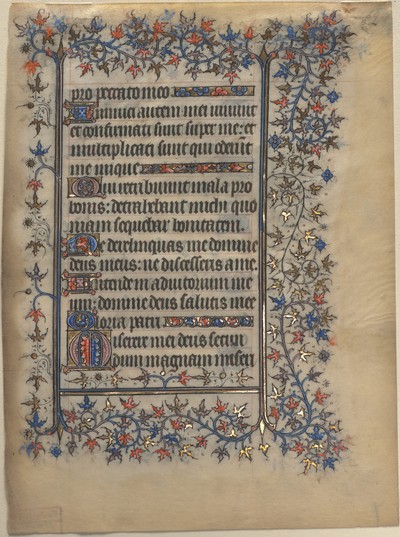 pro peccato meo
Inimici autem mei vivunt
et confirmati sunt super me: et
multiplicati sunt qui oderunt
me inique
Qui retribuunt mala pro
bonis: detrahebant michi quo
niam sequebar bonitatem.
Ne derelinquas me domine
deus meus: ne discesseris a me
Intende in adiutorium me
um: domine deus salutis mee
Gloria patri
Miserere mei deus secun
dum magnam miseri